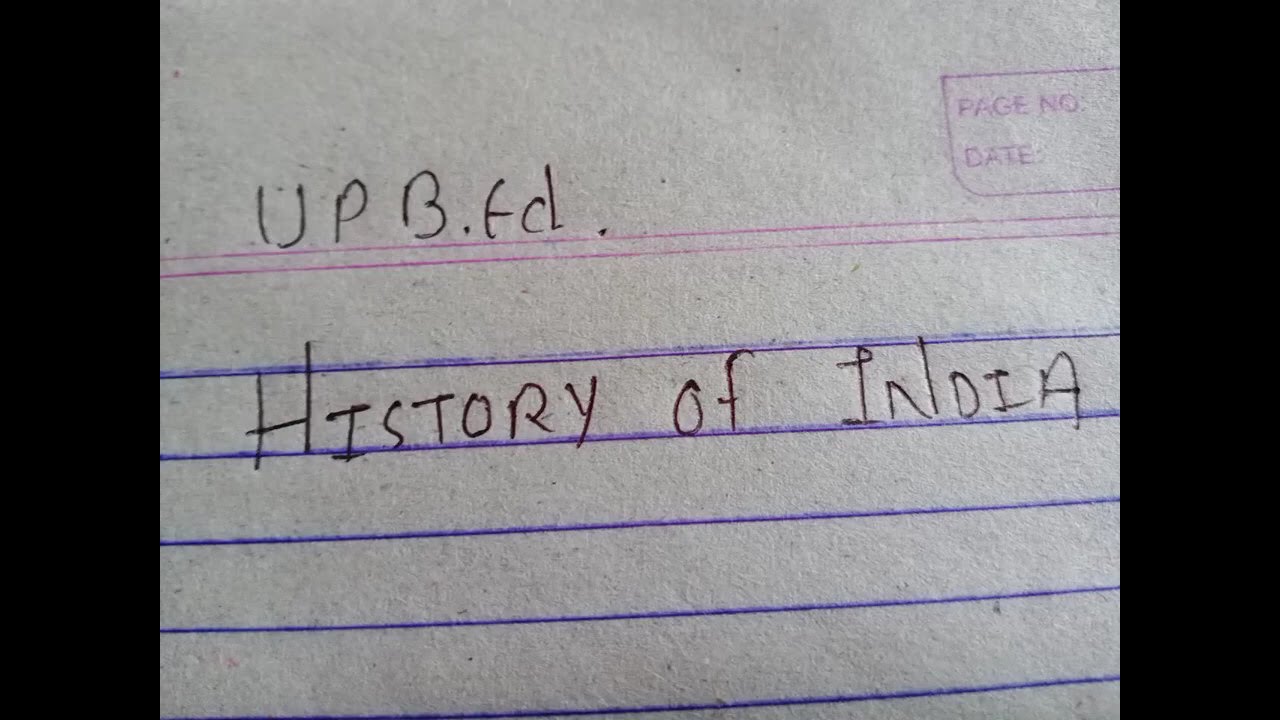 PAGE NO:
DATE:
UP B.Ed.
HISTORY of INDIA